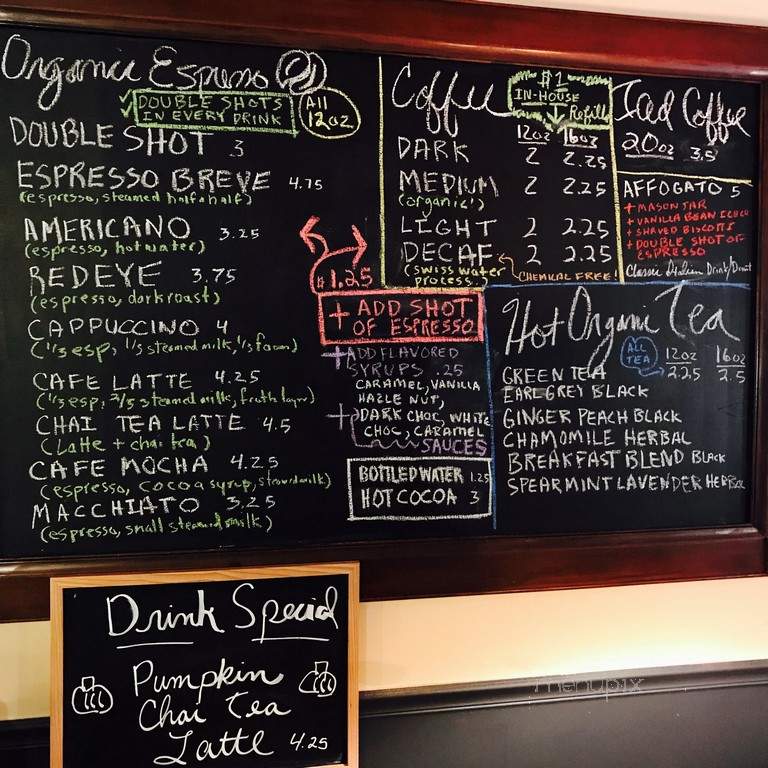 Organic Espresso
✓ DOUBLE SHOTS
IN EVERY DRINK
All
12oz
DOUBLE SHOT 3
ESPRESSO BREVE 4.75
(espresso, steamed half & half)
AMERICANO 3.25
(espresso, hot water)
REDEYE 3.75
(espresso, dark roast)
CAPPUCCINO 4
(1/3 esp, 1/3 steamed milk, 1/3 foam)
CAFE LATTE 4.25
(1/3 esp, 2/3 steamed milk, froth layer)
CHAI TEA LATTE 4.5
(Latte + chai tea)
CAFE MOCHA 4.25
(espresso, cocoa syrup, steamed milk)
MACCHIATO 3.25
(espresso, small steamed milk)
$1.25
+ ADD SHOT
OF ESPRESSO
+ ADD FLAVORED
SYRUPS .25
CARAMEL, VANILLA
HAZLE NUT,
+ DARK CHOC, WHITE
CHOC, CARAMEL
SAUCES
BOTTLED WATER 1.25
HOT COCOA 3
Coffee
$1
IN-HOUSE
Refill
12oz 16oz
DARK 2 2.25
MEDIUM 2 2.25
(organic)
LIGHT 2 2.25
DECAF 2 2.25
(swiss water
process.)
CHEMICAL FREE!
Iced Coffee
20oz 3.5
AFFOGATO 5
+ MASON JAR
+ VANILLA BEAN
+ SHAVED BISCOTTI
+ DOUBLE SHOT OF
ESPRESSO
Classic Italian Drink/
Hot Organic Tea
ALL
TEA
12oz 16oz
2.25 2.5
GREEN TEA
EARL GREY BLACK
GINGER PEACH BLACK
CHAMOMILE HERBAL
BREAKFAST BLEND BLACK
SPEARMINT LAVENDER HERBAL
Drink Special
Pumpkin
Chai Tea
Latte 4.25
menupix